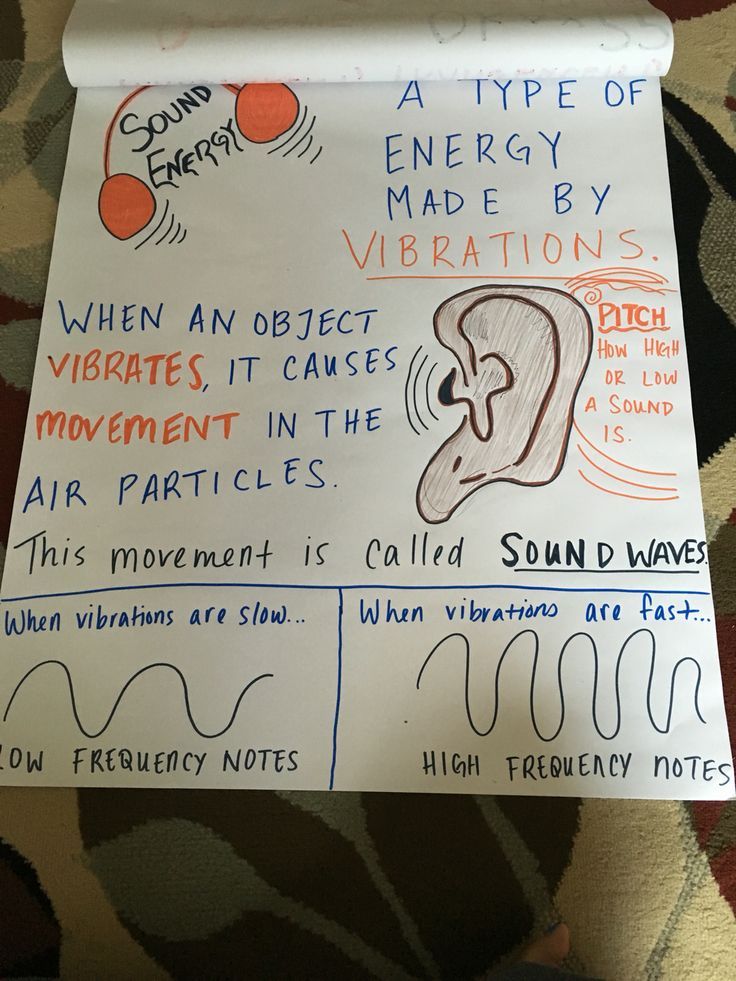 SOUND
ENERGY
A TYPE OF
ENERGY
MADE BY
VIBRATIONS.
WHEN AN OBJECT
VIBRATES, IT CAUSES
MOVEMENT IN THE
AIR PARTICLES.
PITCH
HOW HIGH
OR LOW
A SOUND
IS.
This movement is called SOUND WAVES.
When vibrations are slow...
LOW FREQUENCY NOTES
When vibrations are fast...
HIGH FREQUENCY NOTES